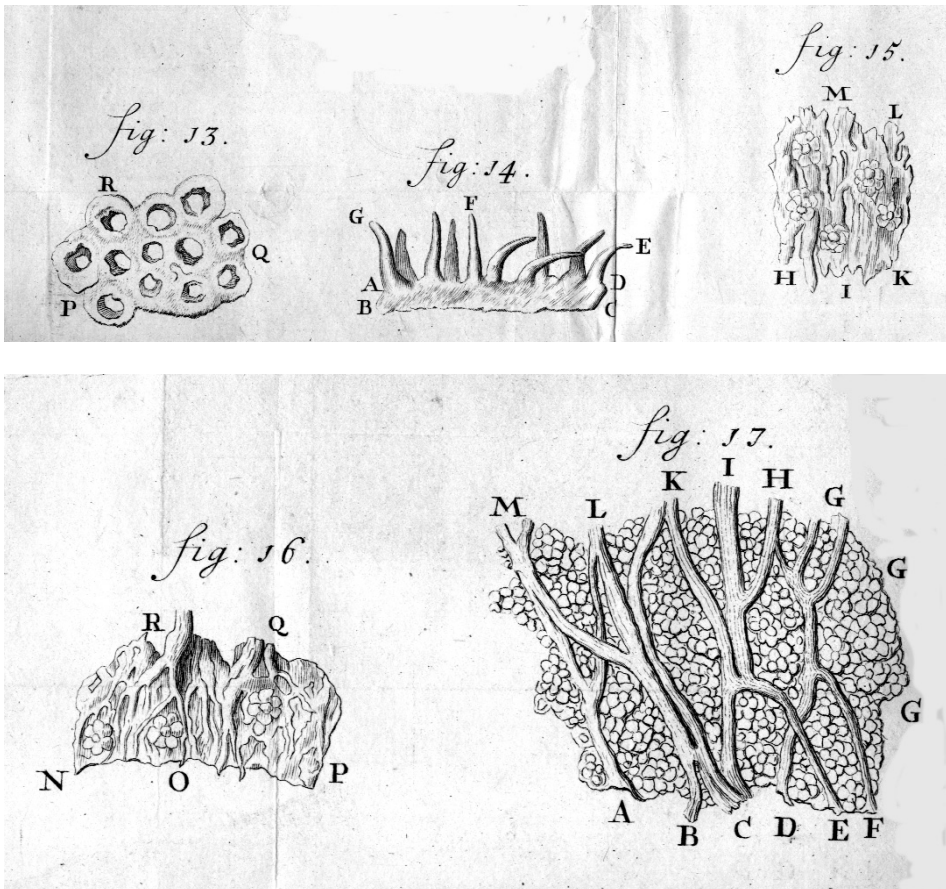 fig: 13.
R
Q
P
fig: 14.
G
F
E
A
D
B
C
fig: 15.
M
L
H
I
K
fig: 16.
R
Q
N
O
P
fig: 17.
M
L
K
I
H
G
G
G
A
B
C
D
E
F